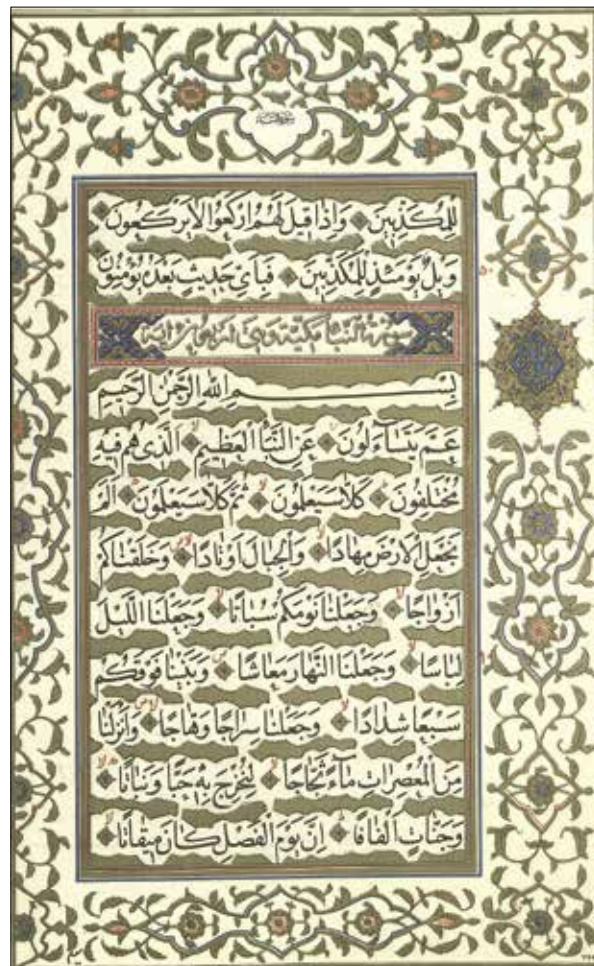 سورة النبأ
للمكذبين وإذا قيل لهم اركعوا لا يركعون
ويل يومئذ للمكذبين فبأي حديث بعده يؤمنون
سورة النبأ مكية وهي اربعون اية
بسم الله الرحمن الرحيم
عم يتساءلون عن النبإ العظيم الذي هم فيه
مختلفون كلا سيعلمون ثم كلا سيعلمون الم
نجعل الارض مهادا والجبال اوتادا وخلقناكم
ازواجا وجعلنا نومكم سباتا وجعلنا الليل
لباسا وجعلنا النهار معاشا وبنينا فوقكم
سبعا شدادا وجعلنا سراجا وهاجا وانزلنا
من المعصرات ماء ثجاجا لنخرج به حبا ونباتا
وجنات الفافا ان يوم الفصل كان ميقاتا